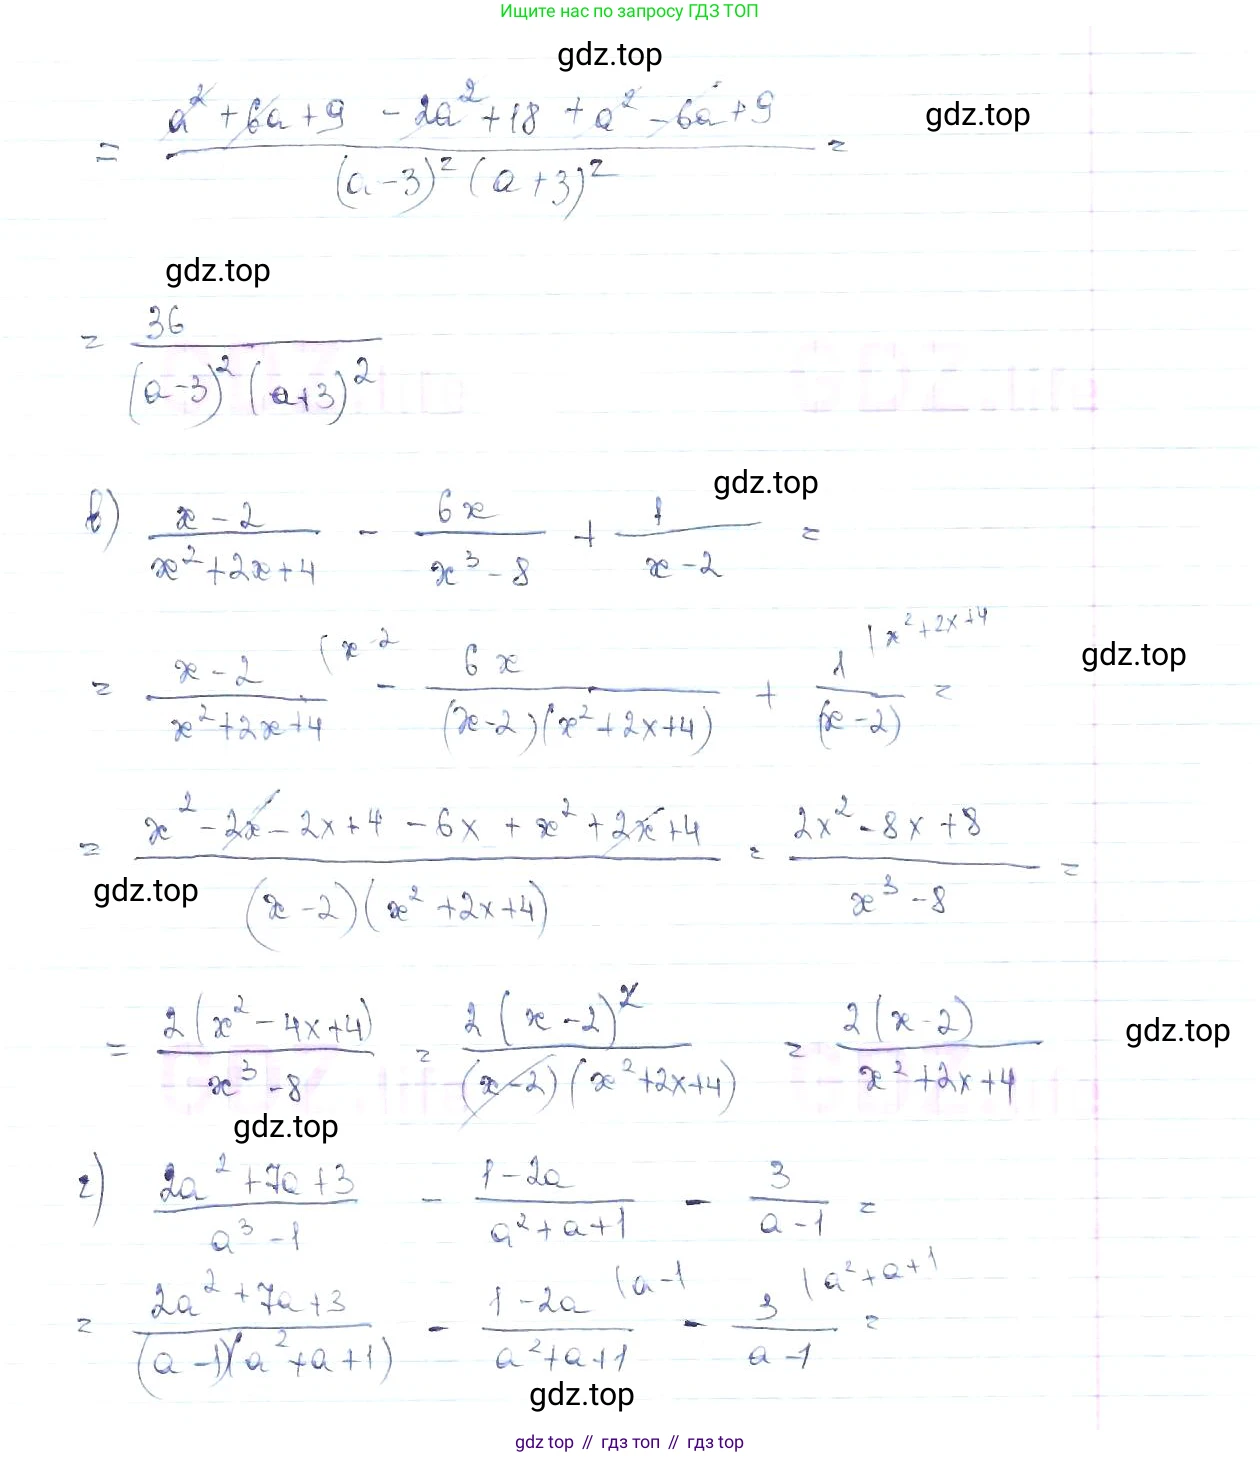 Ищите нас по запросу ГДЗ ТОП
gdz.top
= (a² + 6a + 9 - 2a² + 18 + a² - 6a + 9) / ((a-3)² (a+3)²) =
gdz.top
gdz.top
= 36 / ((a-3)² (a+3)²)
gdz.top
в) (x-2)/(x²+2x+4) - 6x/(x³-8) + 1/(x-2) =
= (x-2)/(x²+2x+4) (x-2 - 6x/((x-2)(x²+2x+4)) + 1/(x-2) (x²+2x+4 =
gdz.top
= (x² - 2x - 2x + 4 - 6x + x² + 2x + 4)/((x-2)(x²+2x+4)) = (2x² - 8x + 8)/(x³-8) =
gdz.top
= 2(x²-4x+4)/(x³-8) = 2(x-2)²/((x-2)(x²+2x+4)) = 2(x-2)/(x²+2x+4)
gdz.top
gdz.top
г) (2a²+7a+3)/(a³-1) - (1-2a)/(a²+a+1) - 3/(a-1) =
= (2a²+7a+3)/((a-1)(a²+a+1)) - (1-2a)/(a²+a+1) (a-1 - 3/(a-1) (a²+a+1 =
gdz.top
gdz top // гдз топ // гдз top